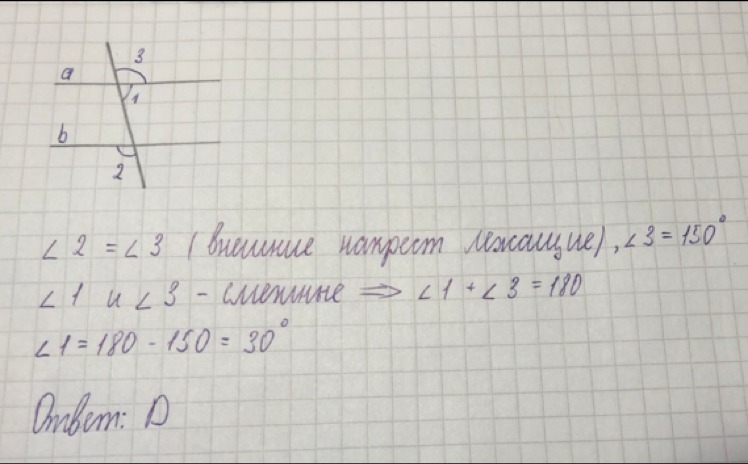 3
a
1
b
2
∠2 = ∠3 (внешние накрест лежащие), ∠3 = 150°
∠1 и ∠3 - смежные ⇒ ∠1 + ∠3 = 180
∠1 = 180 - 150 = 30°
Ответ: D